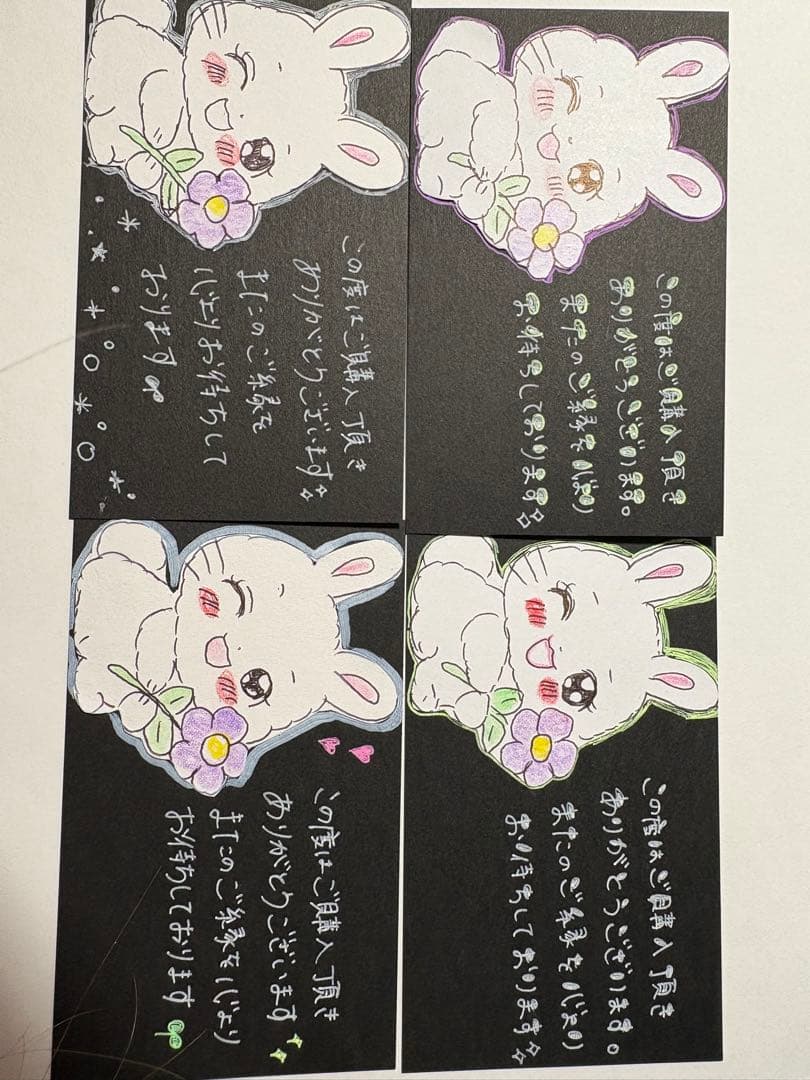 この度はご購入頂き
ありがとうございます
またのご縁を
心よりお待ちして
おります
この度はご購入頂き
ありがとうございます。
またのご縁を心より
お待ちしております
この度はご購入頂き
ありがとうございます
またのご縁を心より
お待ちしております
この度はご購入頂き
ありがとうございます。
またのご縁を心より
お待ちしております